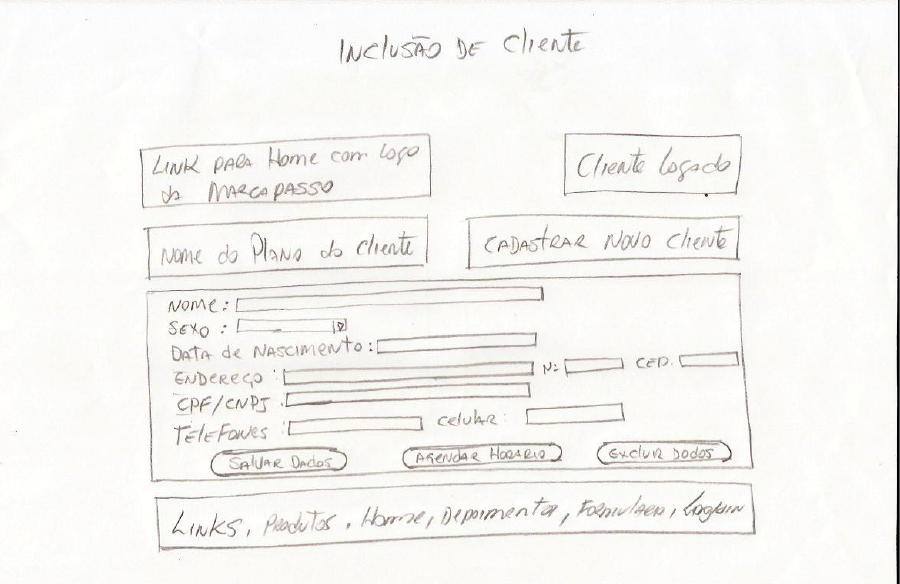 INCLUSÃO DE Cliente
LINK PARA Home com Logo
da MARCAPASSO
Cliente Logado
Nome do Plano do Cliente
CADASTRAR NOVO Cliente
NOME:
SEXO :
DATA de NASCIMENTO:
ENDEREÇO : N: CEP:
CPF/CNPJ :
TELEFONES : Celular:
SALVAR DADOS
AGENDAR HORARIO
EXCLUIR DADOS
Links, Produtos, Home, Depoimentos, Formulario, Loguin